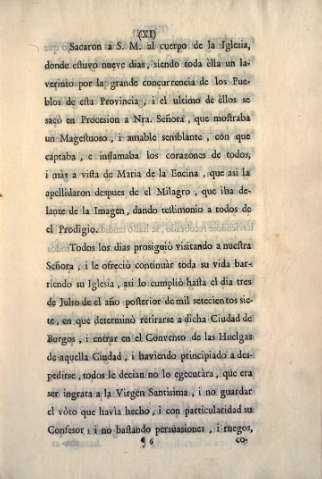 (XI)
Sacaron à S. M. al cuerpo de la Iglesia,
donde estuvo nueve dias, siendo toda èlla un la-
verinto por la grande concurrencia de los Pue-
blos de esta Provincia, i el ultimo de èllos se
sacò en Procesion à Nra. Señora, que mostraba
un Magestuoso, i amable semblante, con que
captaba, e inflamaba los corazones de todos;
i màs à vista de Maria de la Encina, que asi la
apellidaron despues de el Milagro, que iba de-
lante de la Imagen, dando testimonio à todos de
el Prodigio.
Todos los dias prosiguiò visitando à nuestra
Señora, i le ofreciò continuàr toda su vida bar-
riendo su Iglesia, asi lo cumpliò hasta el dia tres
de Julio de el año posterior de mil setecientos sie-
te, en que determinò retirarse à dicha Ciudad de
Burgos, i entrar en el Convento de las Huelgas
de aquella Ciudad, i haviendo principiado à des-
pedirse, todos le decian no lo egecutàra, que era
ser ingrata à la Virgen Santisima, i no guardar
el vòto que havia hecho, i con particularidad su
Confesor; i no bastando persuasiones, i ruegos,
¶6 co-